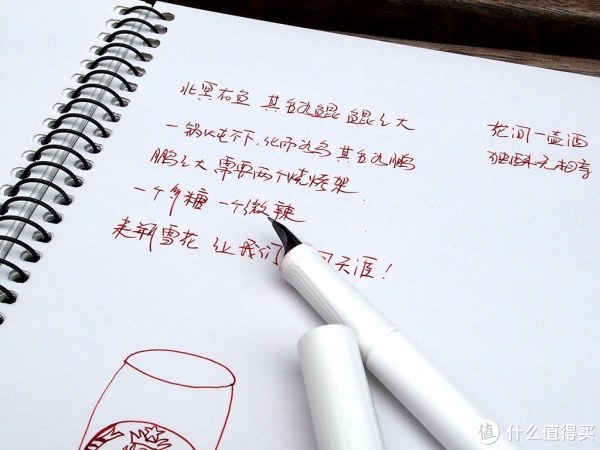 北冥有鱼 其名为鲲 鲲之大
一锅炖不下,化而为鸟 其名为鹏
鹏之大 需要两个烧烤架
一个多糖 一个微辣
来瓶雪花 让我们 天涯!
花间一壶酒
独酌无相亲
值 什么值得买